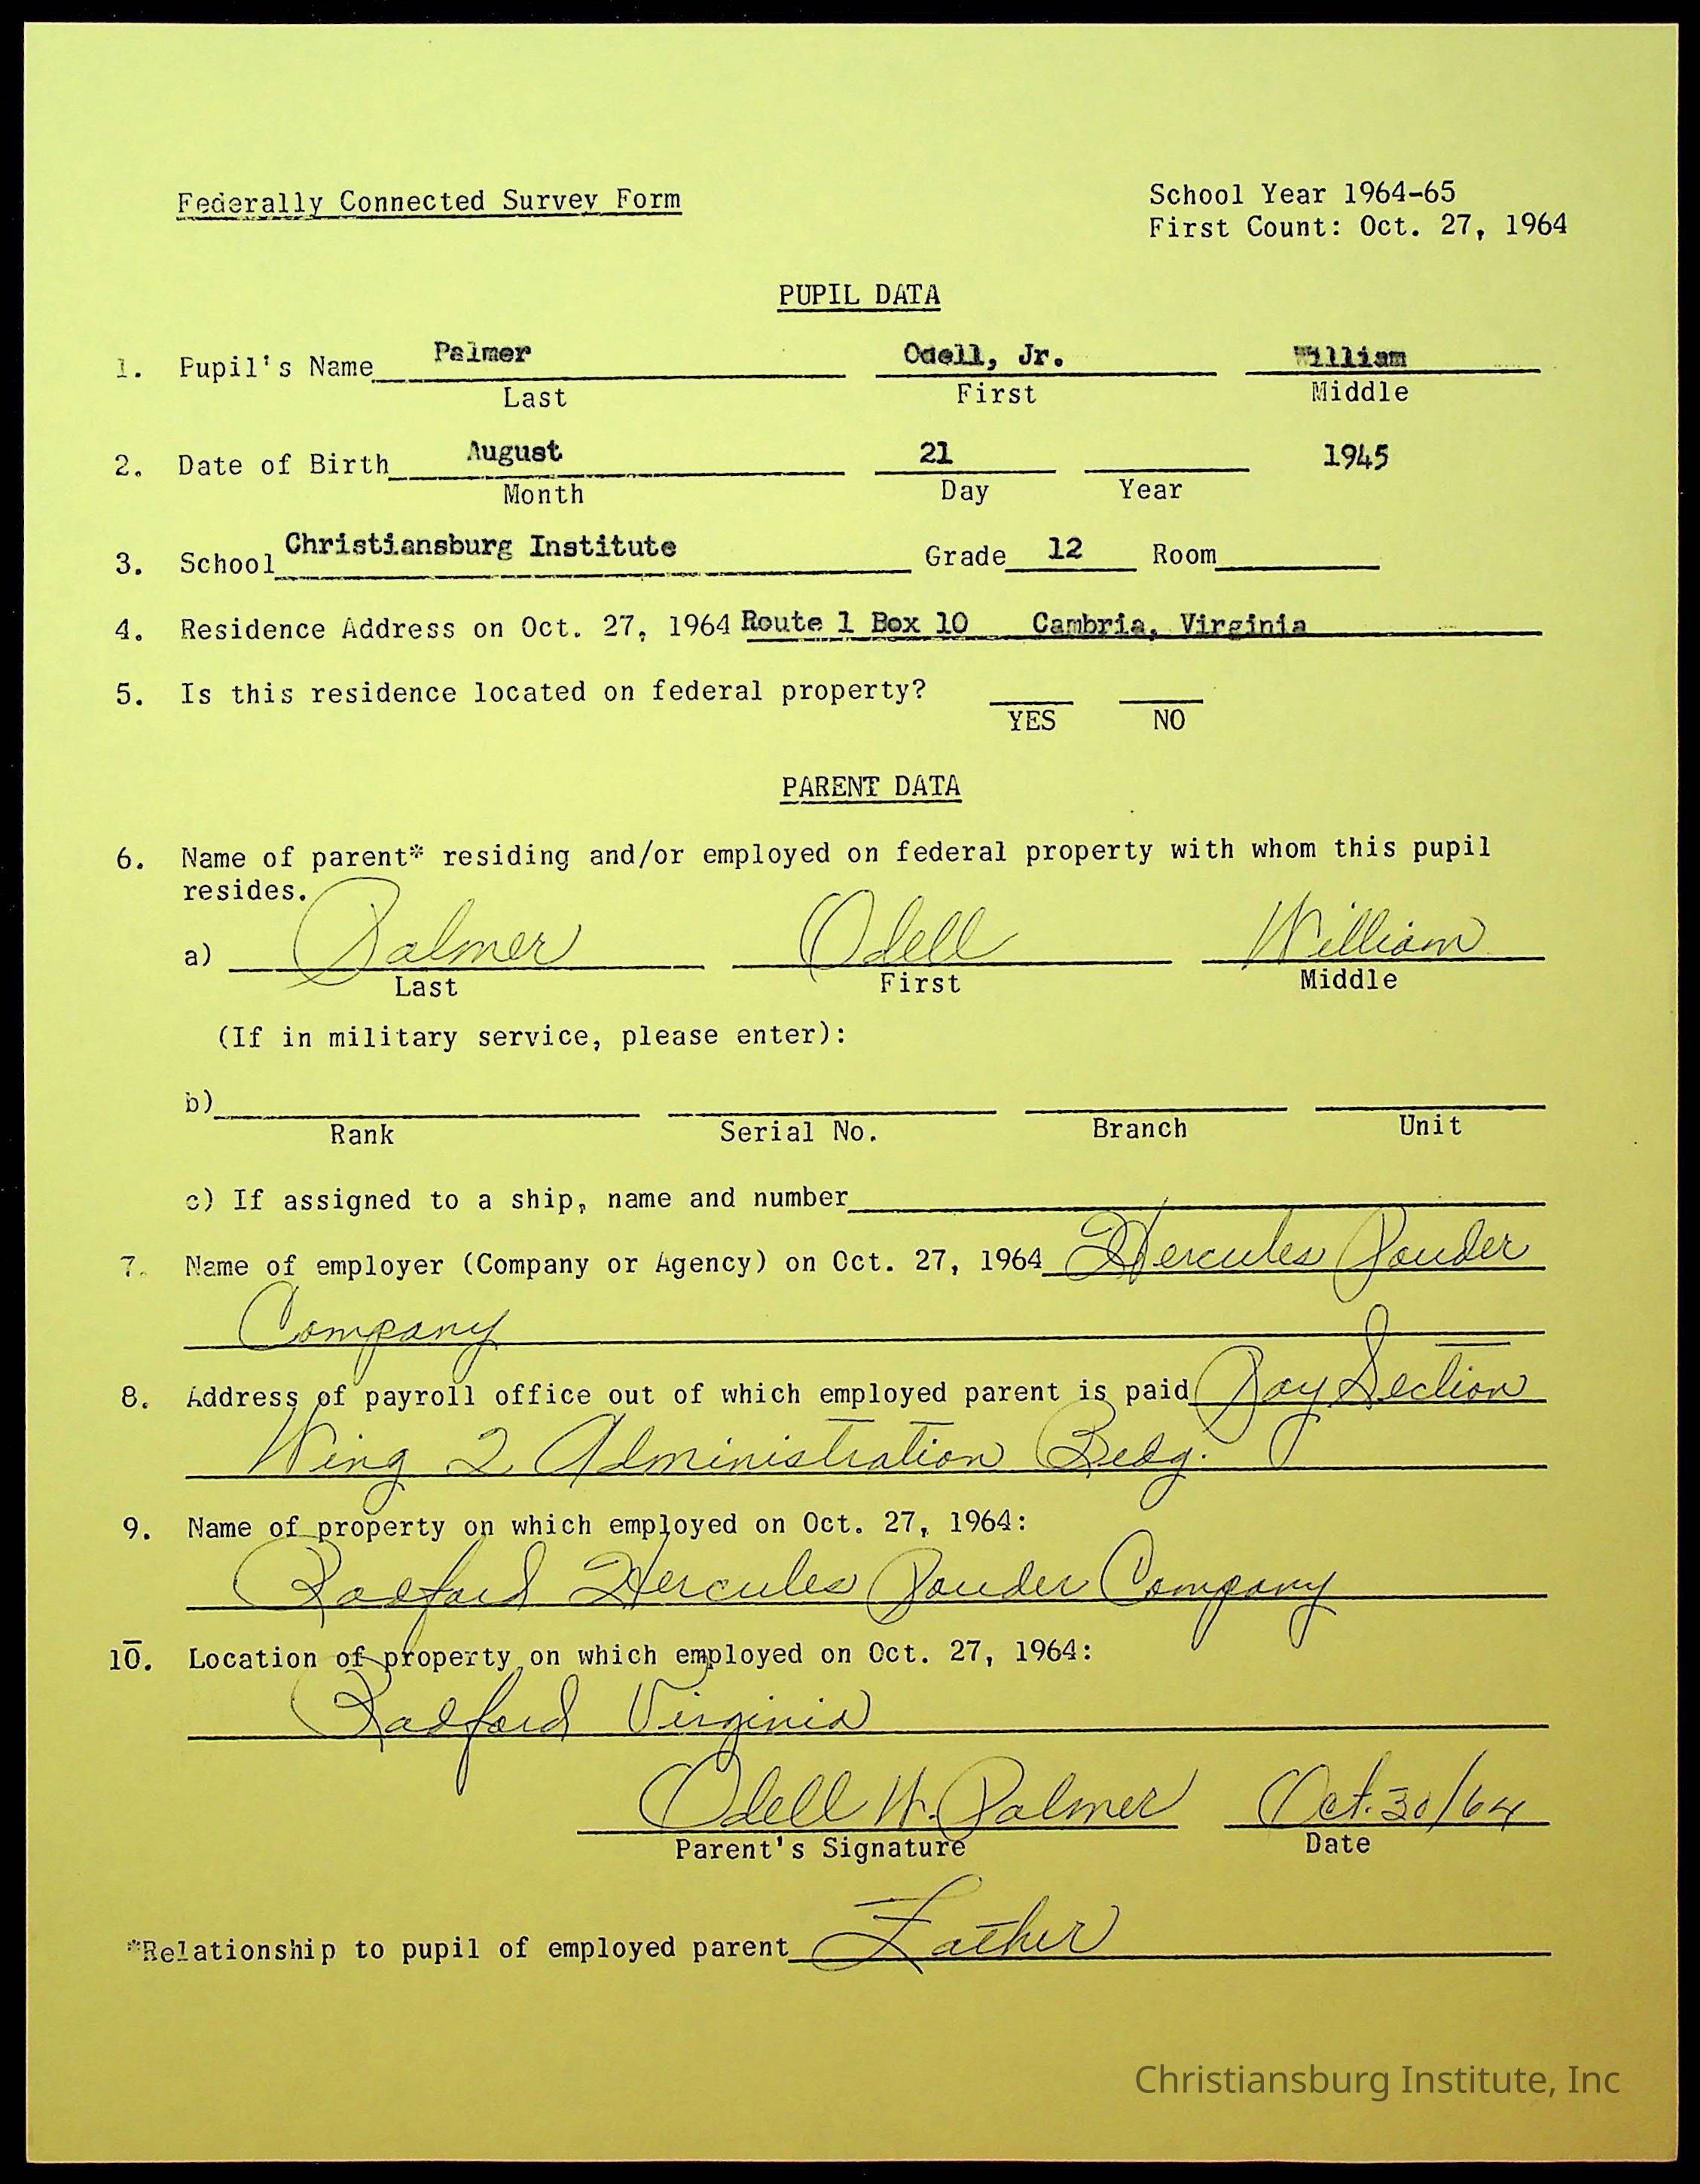 Federally Connected Survey Form
School Year 1964-65
First Count: Oct. 27, 1964
PUPIL DATA
1. Pupil's Name Palmer Odell, Jr. William
Last First Middle
2. Date of Birth August 21 1945
Month Day Year
3. School Christiansburg Institute Grade 12 Room
4. Residence Address on Oct. 27, 1964 Route 1 Box 10 Cambria, Virginia
5. Is this residence located on federal property?
YES NO
PARENT DATA
6. Name of parent* residing and/or employed on federal property with whom this pupil
resides.
a) Palmer Odell William
Last First Middle
(If in military service, please enter):
b)
Rank Serial No. Branch Unit
c) If assigned to a ship, name and number
7. Name of employer (Company or Agency) on Oct. 27, 1964 Hercules Pouder
Company
8. Address of payroll office out of which employed parent is paid Pay Section
Wing 2 Administration Bldg.
9. Name of property on which employed on Oct. 27, 1964:
Radford Hercules Pouder Company
10. Location of property on which employed on Oct. 27, 1964:
Radford Virginia
Odell W. Palmer Oct. 30/64
Parent's Signature Date
*Relationship to pupil of employed parent Father
Christiansburg Institute, Inc